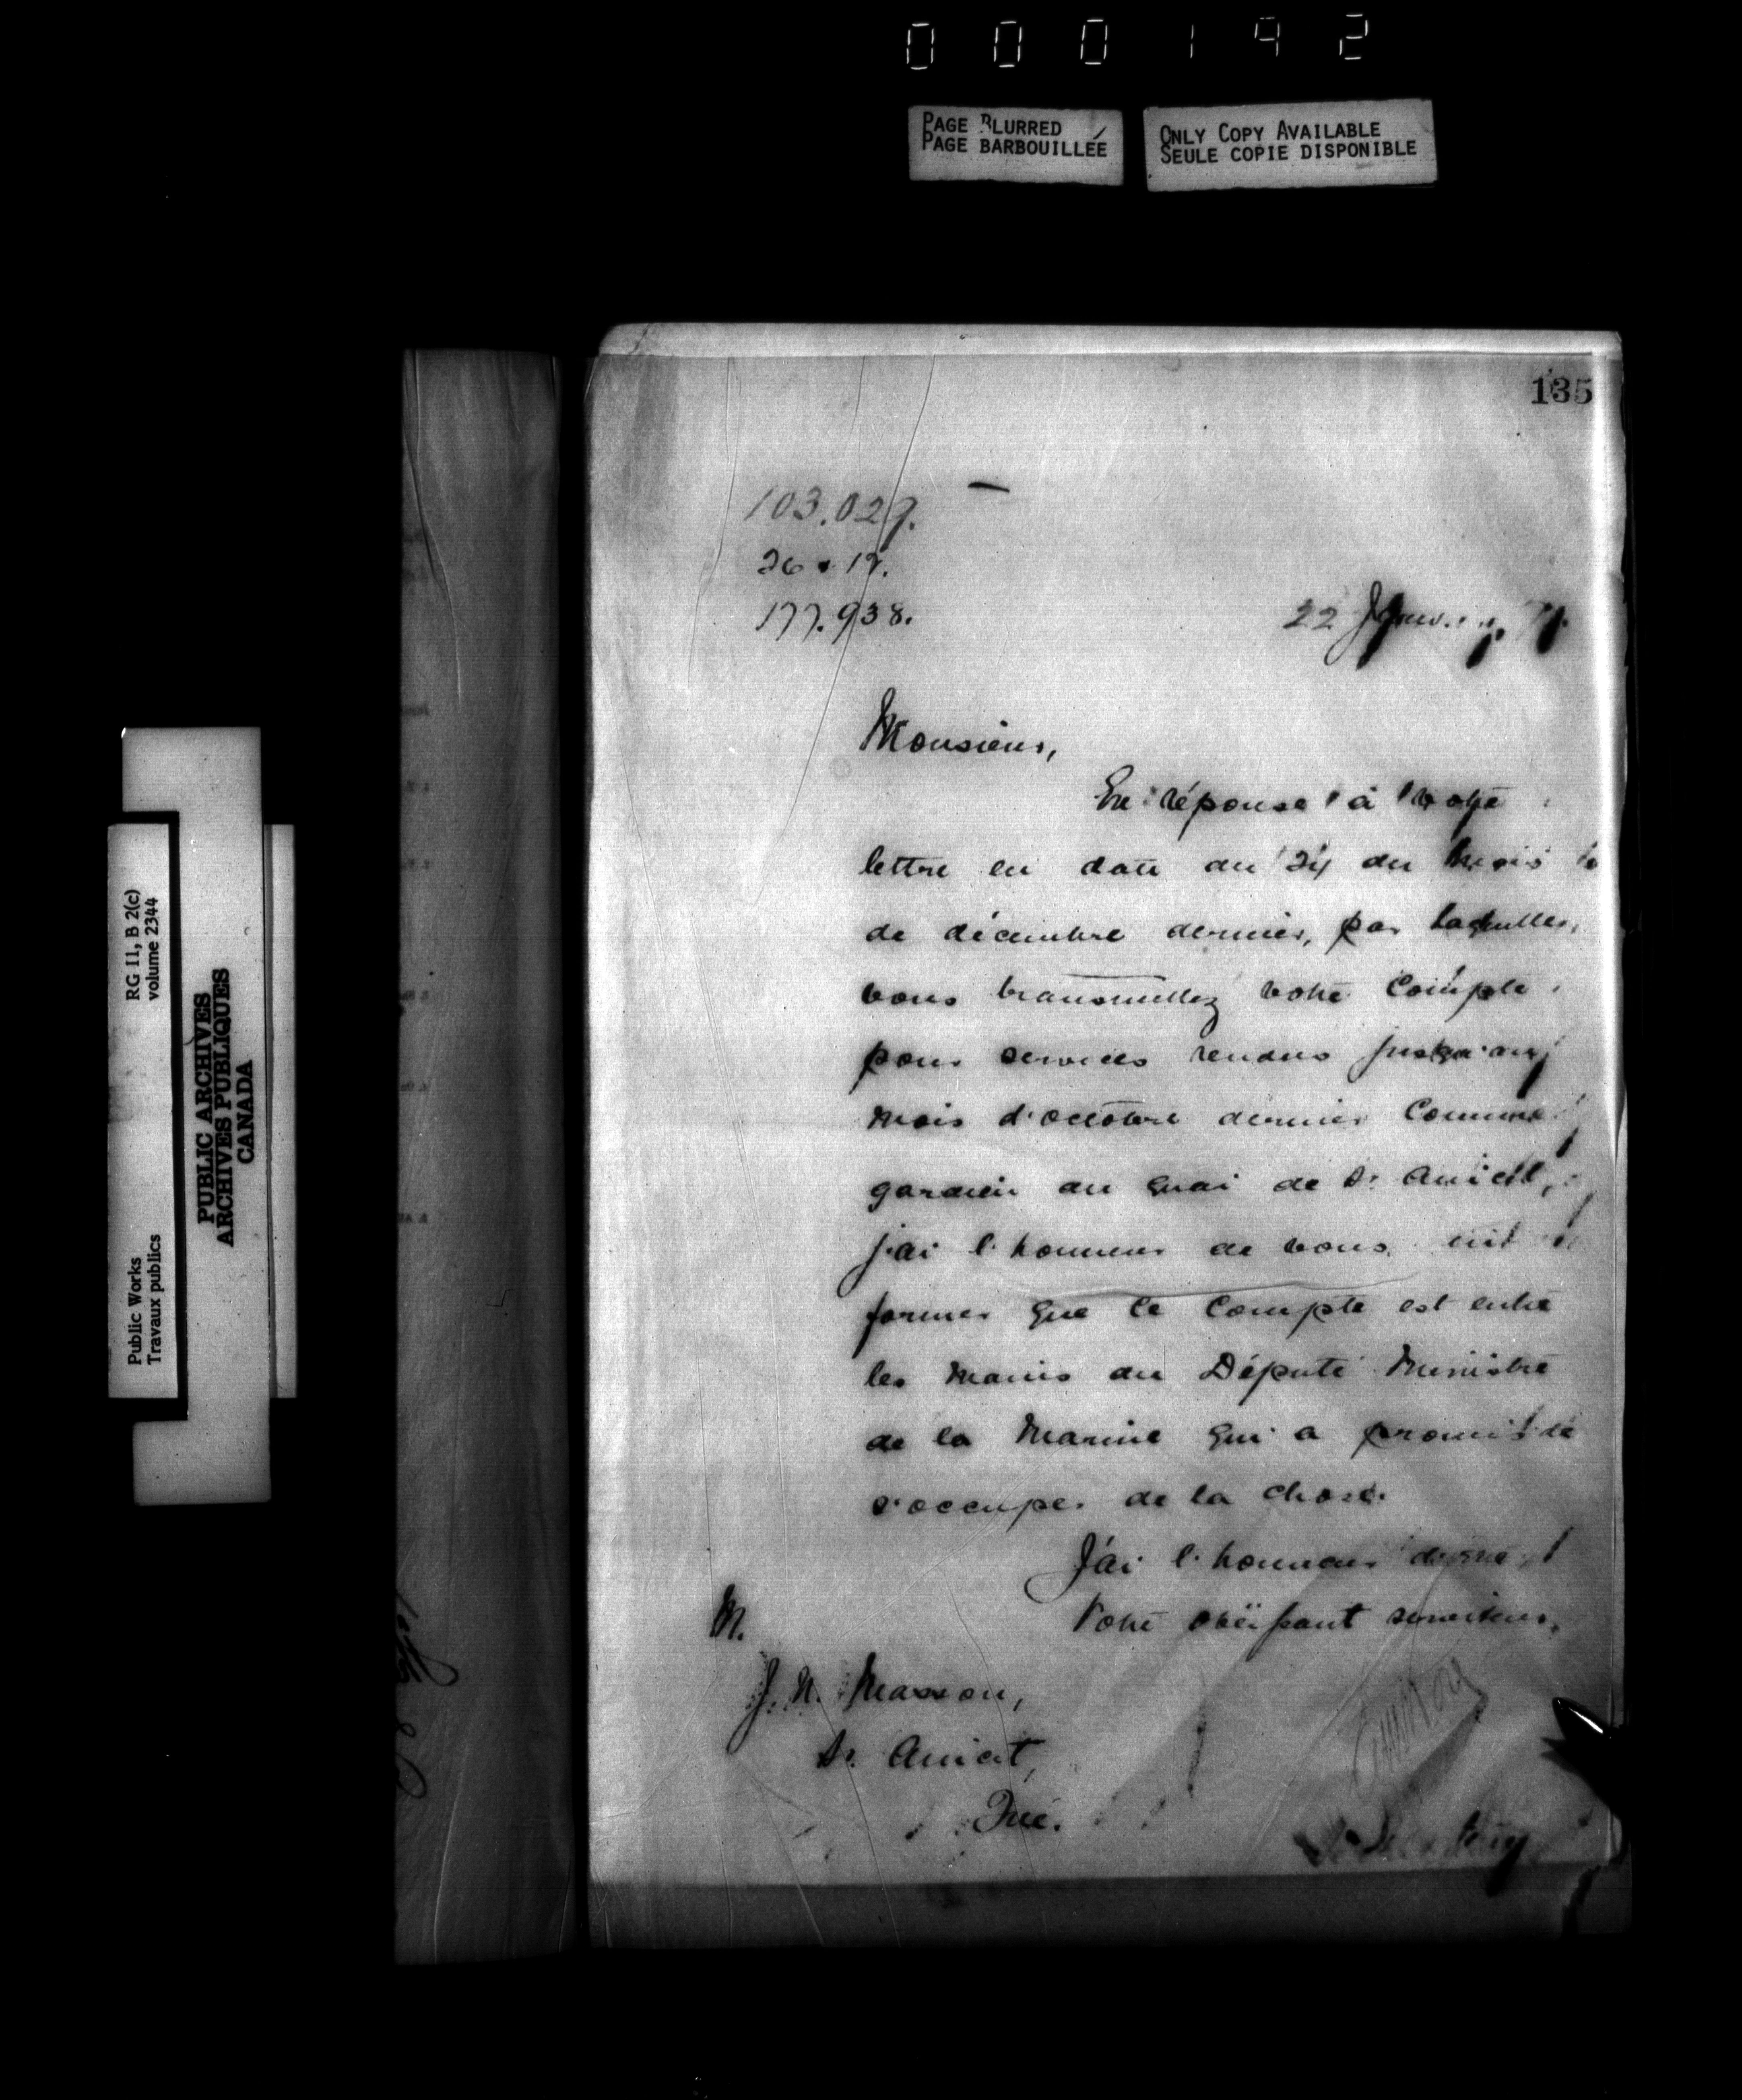 000192
PAGE BLURRED
PAGE BARBOUILLÉE
ONLY COPY AVAILABLE
SEULE COPIE DISPONIBLE
135
103.027.
26.12.
177.938.
22
Monsieur,
En réponse à votre
lettre en date du 24 du mois
de décembre dernier, par laquelle
vous transmettez votre compte
pour services rendus jusqu'au
mois d'octobre dernier comme
gardien du quai de St Anicet,
j'ai l'honneur de vous in
former que le compte est entre
les mains du Député Ministre
de la Marine qui a promis de
s'occuper de la chose.
J'ai l'honneur d'être
Votre obéissant serviteur,
M.
J. N. Masson,
St Anicet,
Qué.
RG 11, B 2(c)
volume 2344
Public Works
Travaux publics
PUBLIC ARCHIVES
ARCHIVES PUBLIQUES
CANADA